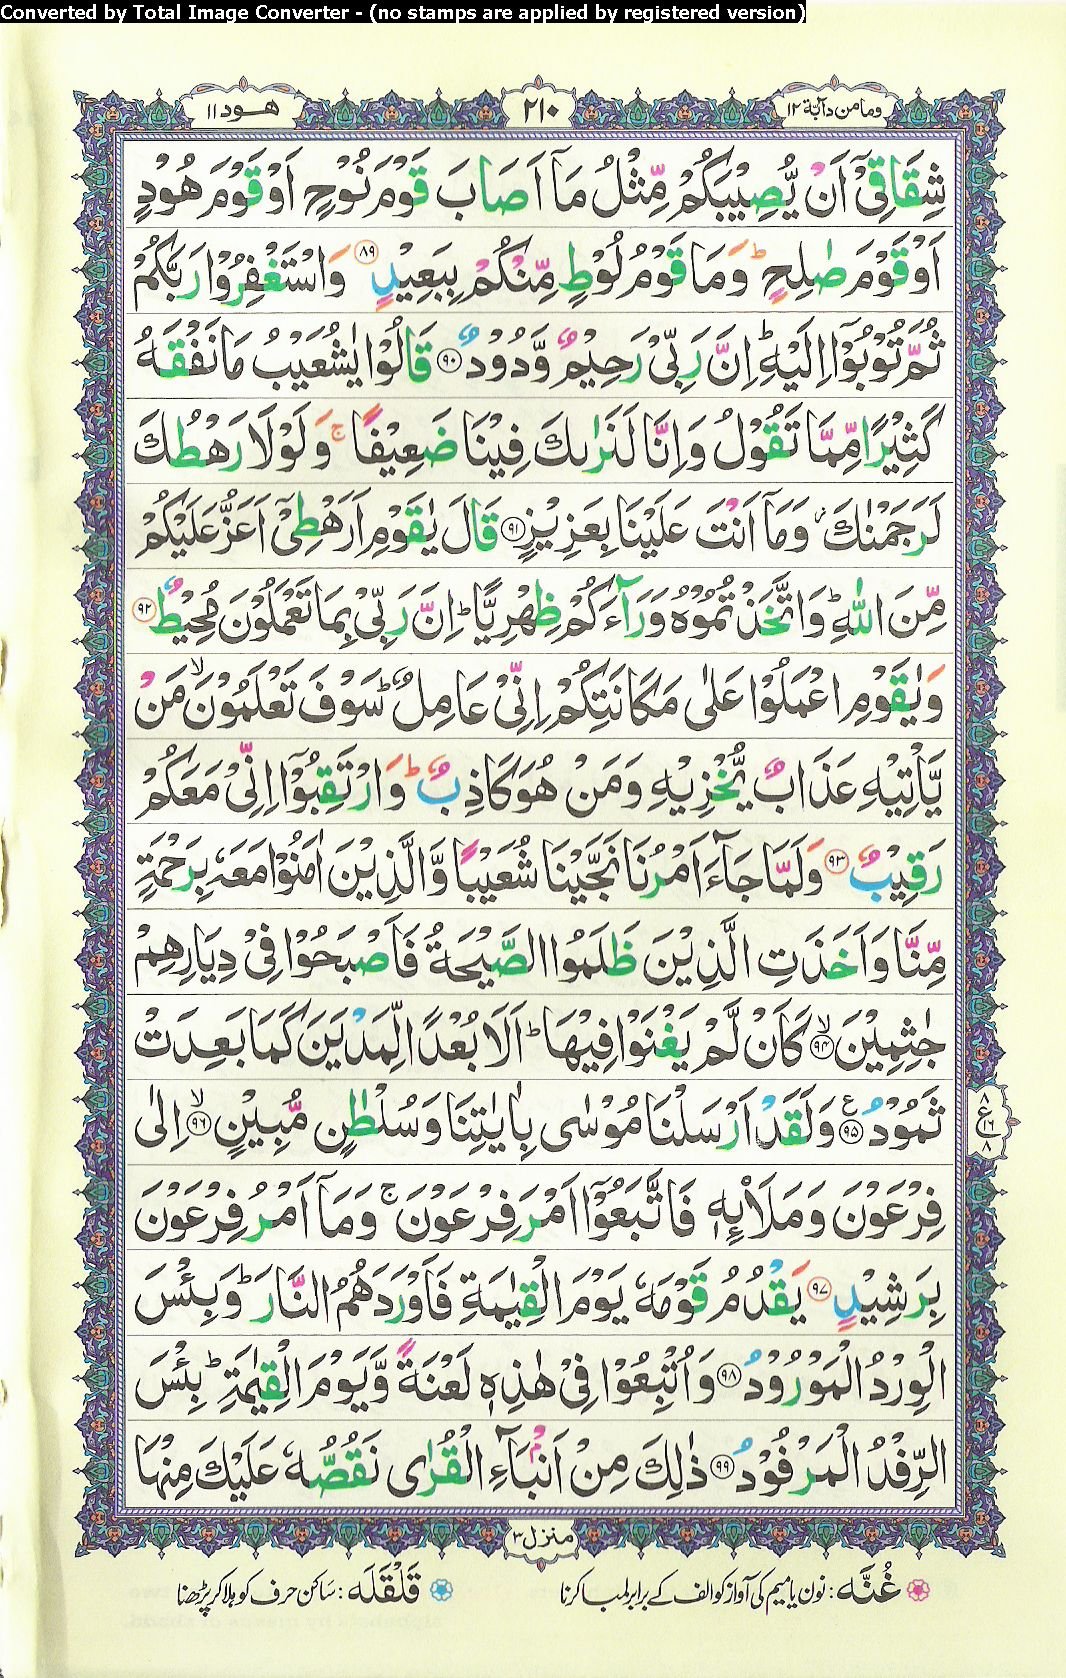 Converted by Total Image Converter - (no stamps are applied by registered version)
وما من دآبة ١٢
٢١٠
هود ١١
شِقَاقِیْۤ اَنْ یُّصِیْبَكُمْ مِّثْلُ مَاۤ اَصَابَ قَوْمَ نُوْحٍ اَوْ قَوْمَ هُوْدٍ
اَوْ قَوْمَ صٰلِحٍ ؕ وَ مَا قَوْمُ لُوْطٍ مِّنْكُمْ بِبَعِیْدٍ ۸۹ وَ اسْتَغْفِرُوْا رَبَّكُمْ
ثُمَّ تُوْبُوْۤا اِلَیْهِ ؕ اِنَّ رَبِّیْ رَحِیْمٌ وَّدُوْدٌ ۹۰ قَالُوْا یٰشُعَیْبُ مَا نَفْقَهُ
كَثِیْرًا مِّمَّا تَقُوْلُ وَ اِنَّا لَنَرٰىكَ فِیْنَا ضَعِیْفًا ۚ وَ لَوْ لَا رَهْطُكَ
لَرَجَمْنٰكَ ؗ وَ مَاۤ اَنْتَ عَلَیْنَا بِعَزِیْزٍ ۹۱ قَالَ یٰقَوْمِ اَرَهْطِیْۤ اَعَزُّ عَلَیْكُمْ
مِّنَ اللّٰهِ ؕ وَ اتَّخَذْتُمُوْهُ وَرَآءَكُمْ ظِهْرِیًّا ؕ اِنَّ رَبِّیْ بِمَا تَعْمَلُوْنَ مُحِیْطٌ ۹۲
وَ یٰقَوْمِ اعْمَلُوْا عَلٰى مَكَانَتِكُمْ اِنِّیْ عَامِلٌ ؕ سَوْفَ تَعْلَمُوْنَ ۙ مَنْ
یَّاْتِیْهِ عَذَابٌ یُّخْزِیْهِ وَ مَنْ هُوَ كَاذِبٌ ؕ وَ ارْتَقِبُوْۤا اِنِّیْ مَعَكُمْ
رَقِیْبٌ ۹۳ وَ لَمَّا جَآءَ اَمْرُنَا نَجَّیْنَا شُعَیْبًا وَّ الَّذِیْنَ اٰمَنُوْا مَعَهٗ بِرَحْمَةٍ
مِّنَّا وَ اَخَذَتِ الَّذِیْنَ ظَلَمُوا الصَّیْحَةُ فَاَصْبَحُوْا فِیْ دِیَارِهِمْ
جٰثِمِیْنَ ۙ ۹۴ كَاَنْ لَّمْ یَغْنَوْا فِیْهَا ؕ اَلَا بُعْدًا لِّمَدْیَنَ كَمَا بَعِدَتْ
ثَمُوْدُ ۹۵ ع وَ لَقَدْ اَرْسَلْنَا مُوْسٰى بِاٰیٰتِنَا وَ سُلْطٰنٍ مُّبِیْنٍ ۙ ۹۶ اِلٰى
ع ۸ ۱۲ ۸
فِرْعَوْنَ وَ مَلَاۡئِهٖ فَاتَّبَعُوْۤا اَمْرَ فِرْعَوْنَ ۚ وَ مَاۤ اَمْرُ فِرْعَوْنَ
بِرَشِیْدٍ ۹۷ یَقْدُمُ قَوْمَهٗ یَوْمَ الْقِیٰمَةِ فَاَوْرَدَهُمُ النَّارَ ؕ وَ بِئْسَ
الْوِرْدُ الْمَوْرُوْدُ ۹۸ وَ اُتْبِعُوْا فِیْ هٰذِهٖ لَعْنَةً وَّ یَوْمَ الْقِیٰمَةِ ؕ بِئْسَ
الرِّفْدُ الْمَرْفُوْدُ ۹۹ ذٰلِكَ مِنْ اَنْۢبَآءِ الْقُرٰى نَقُصُّهٗ عَلَیْكَ مِنْهَا
منزل ٣
غُنَّہ : نون یا میم کی آواز کو الف کے برابر لمبا کرنا قَلْقَلَہ : ساکن حرف کو ہلا کر پڑھنا